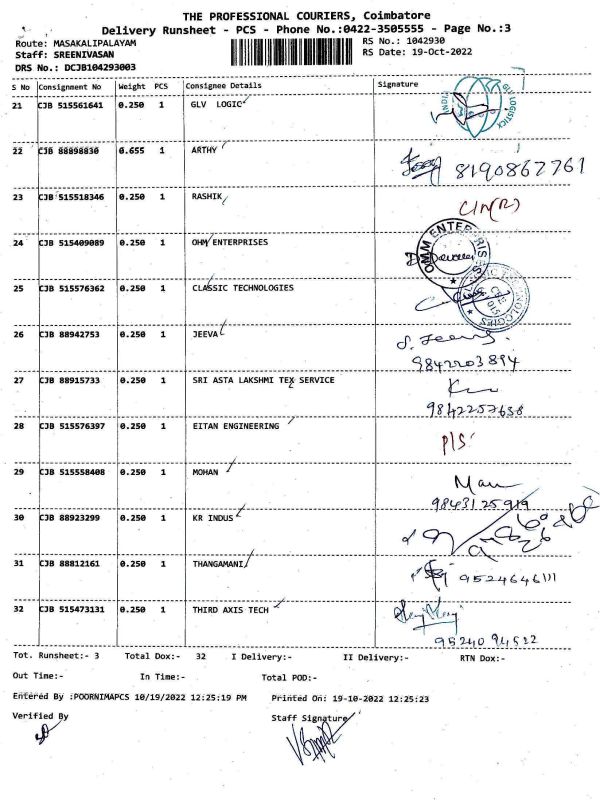 THE PROFESSIONAL COURIERS, Coimbatore
Delivery Runsheet - PCS - Phone No.:0422-3505555 - Page No.:3
Route: MASAKALIPALAYAM RS No.: 1042930
Staff: SREENIVASAN RS Date: 19-Oct-2022
DRS No.: DCJB104293003
S No Consignment No Weight PCS Consignee Details Signature
21 CJB 515561641 0.250 1 GLV LOGIC
GLV LOGISTICX
22 CJB 88898830 0.655 1 ARTHY
8190867761
23 CJB 515518346 0.250 1 RASHIK
24 CJB 515409089 0.250 1 OHM ENTERPRISES
OMM ENTERPRISES
25 CJB 515576362 0.250 1 CLASSIC TECHNOLOGIES
26 CJB 88942753 0.250 1 JEEVA
9842203894
27 CJB 88915733 0.250 1 SRI ASTA LAKSHMI TEX SERVICE
9842257638
28 CJB 515576397 0.250 1 EITAN ENGINEERING
P/S
29 CJB 515558408 0.250 1 MOHAN
9843125919
30 CJB 88923299 0.250 1 KR INDUS
31 CJB 88812161 0.250 1 THANGAMANI
9524646111
32 CJB 515473131 0.250 1 THIRD AXIS TECH
9524094522
Tot. Runsheet:- 3 Total Dox:- 32 I Delivery:- II Delivery:- RTN Dox:-
Out Time:- In Time:- Total POD:-
Entered By :POORNIMAPCS 10/19/2022 12:25:19 PM Printed On: 19-10-2022 12:25:23
Verified By Staff Signature